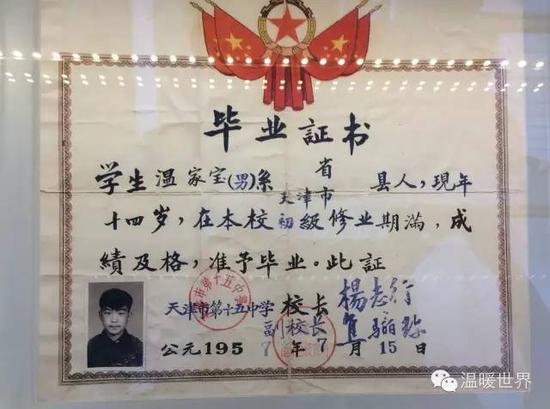 毕业証书
省
学生温家宝(男)系天津市县人,現年
十四岁,在本校初級修业期滿,成
績及格,准予毕业。此証
天津市第十五中学 校长 楊志行
副校长
公元1957年7月15日
温暖世界